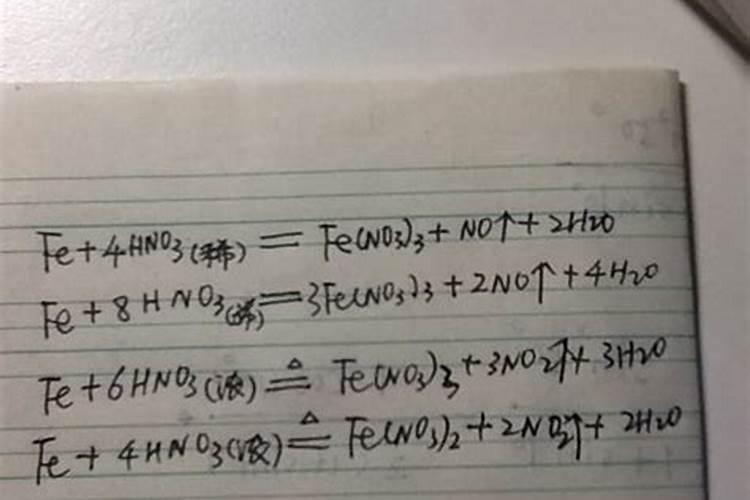 Fe+4HNO₃(稀) = Fe(NO₃)₃+NO↑+2H₂O
Fe+8HNO₃(稀)=3Fe(NO₃)₃+2NO↑+4H₂O
Fe+6HNO₃(浓) ≜ Fe(NO₃)₃+3NO₂↑+3H₂O
Fe+4HNO₃(浓) ≜ Fe(NO₃)₂+2NO₂↑+2H₂O